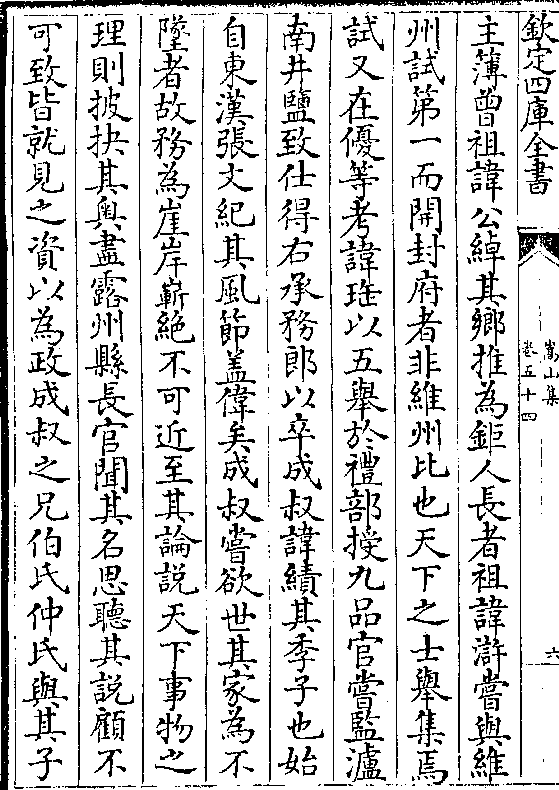 欽定四庫全書
嵩山集
卷五十四
六
主簿曾祖諱公綽其鄉推為鉅人長者祖諱滸嘗與維
州試第一而開封府者非維州比也天下之士舉集焉
試又在優等考諱珫以五舉於禮部授九品官嘗監瀘
南井鹽致仕得右承務郎以卒成叔諱績其季子也始
自東漢張文紀其風節蓋偉矣成叔嘗欲世其家為不
墜者故務為崖岸嶄絶不可近至其論説天下事物之
理則披抉其奥盡露州縣長官聞其名思聽其説顧不
可致皆就見之資以為政成叔之兄伯氏仲氏與其子